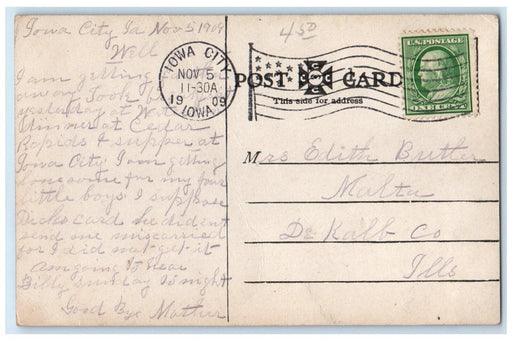 Iowa City Ia Nov 5 1909
Well
I am getting
away. Took
yesterday at
dinner at Cedar
Rapids & supper at
Iowa City I am getting
lonesome for my four
little boys I suppose
Dicks card he did ent
send me miscarried
for I did not get it
am going to hear
Billy Sunday to night
Good Bye Mother
450
IOWA CITY
NOV 5
11-30A
19 09
IOWA
POST CARD
This side for address
U.S. POSTAGE
ONE CENT
Mrs Edith Butler
Malta
De Kalb Co
Ills